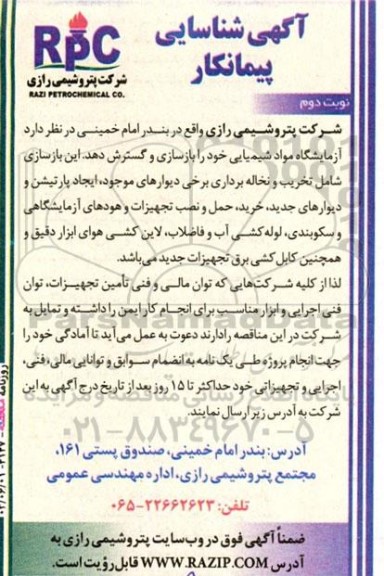 آگهی شناسایی
پیمانکار
RPC
شرکت پتروشیمی رازی
RAZI PETROCHEMICAL CO.
نوبت دوم
شرکت پتروشیمی رازی واقع در بندر امام خمینی در نظر دارد
آزمایشگاه مواد شیمیایی خود را بازسازی و گسترش دهد. این بازسازی
شامل تخریب و نخاله برداری برخی دیوارهای موجود، ایجاد پارتیشن و
دیوارهای جدید، خرید، حمل و نصب تجهیزات و هودهای آزمایشگاهی
و سکوبندی، لوله کشی آب و فاضلاب، لاین کشی هوای ابزار دقیق و
همچنین کابل کشی برق تجهیزات جدید می‌باشد.
لذا از کلیه شرکت‌هایی که توان مالی و فنی تأمین تجهیزات، توان
فنی اجرایی و ابزار مناسب برای انجام کار ایمن را داشته و تمایل به
شرکت در این مناقصه را دارند دعوت به عمل می‌آید تا آمادگی خود را
جهت انجام پروژه طی یک نامه به انضمام سوابق و توانایی مالی، فنی،
اجرایی و تجهیزاتی خود حداکثر تا ۱۵ روز بعد از تاریخ درج آگهی به این
شرکت به آدرس زیر ارسال نمایند.
۰۲۱-۸۸۳۴۹۶۷۰-۵
آدرس: بندر امام خمینی، صندوق پستی ۱۶۱،
مجتمع پتروشیمی رازی، اداره مهندسی عمومی
تلفن: ۲۲۶۶۲۶۲۳-۰۶۵
ضمناً آگهی فوق در وب‌سایت پتروشیمی رازی به
آدرس WWW.RAZIP.COM قابل رؤیت است.